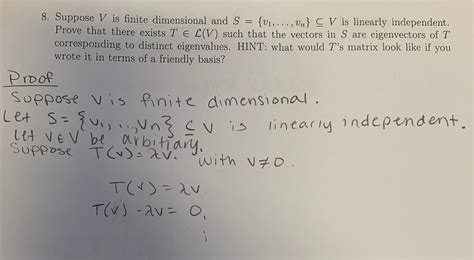 8. Suppose V is finite dimensional and S = {v₁, . . . , vₙ} ⊆ V is linearly independent.
Prove that there exists T ∈ ℒ(V) such that the vectors in S are eigenvectors of T
corresponding to distinct eigenvalues. HINT: what would T's matrix look like if you
wrote it in terms of a friendly basis?
Proof
Suppose V is finite dimensional.
Let S = {v₁, ..., vₙ} ⊆ V is linearly independent.
Let v ∈ V be arbitiary.
Suppose T(v) = λv. with v ≠ 0.
T(v) = λv
T(v) - λv = 0